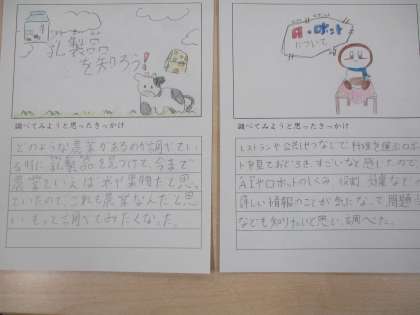 乳製品
を知ろう!
調べてみようと思ったきっかけ
どのような農業があるのか調べてい
る時に乳製品を見つけて、今まで
農業といえば米や果物だと思っ
ていたので、これも農業なんだと思
いもっと調べてみたくなった。
AIロボット
について
調べてみようと思ったきっかけ
レストランや公共しせつなどで料理を運ぶロボ
トを見ておどろき、すごいなと感じたので
AIやロボットのしくみ、役割、効果など
詳しい情報のことが気になって、問題
なども知りたいと思い、調べた。